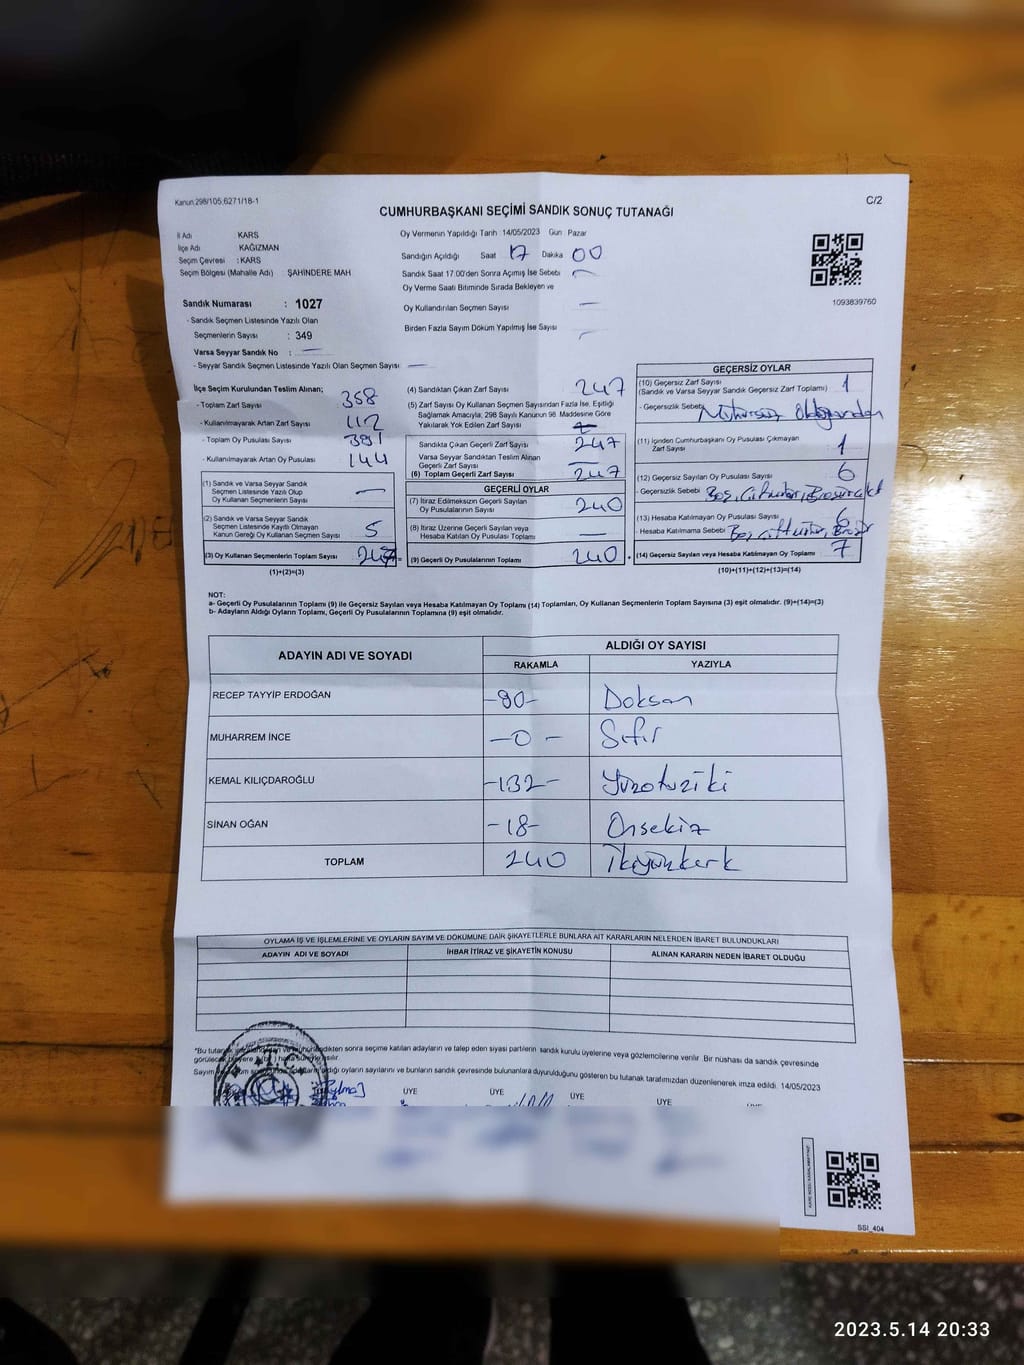 Kanun:298/105,6271/18-1
C/2
CUMHURBAŞKANI SEÇİMİ SANDIK SONUÇ TUTANAĞI
İl Adı : KARS
İlçe Adı : KAĞIZMAN
Seçim Çevresi : KARS
Seçim Bölgesi (Mahalle Adı) : ŞAHİNDERE MAH
Sandık Numarası : 1027
- Sandık Seçmen Listesinde Yazılı Olan
Seçmenlerin Sayısı : 349
Varsa Seyyar Sandık No : —
- Seyyar Sandık Seçmen Listesinde Yazılı Olan Seçmen Sayısı : —
Oy Vermenin Yapıldığı Tarih 14/05/2023 Gün Pazar
Sandığın Açıldığı Saat 17 Dakika 00
Sandık Saat 17.00'den Sonra Açımış İse Sebebi —
Oy Verme Saati Bitiminde Sırada Bekleyen ve
Oy Kullandırılan Seçmen Sayısı —
Birden Fazla Sayım Döküm Yapılmış İse Sayısı —
1093839760
İlçe Seçim Kurulundan Teslim Alınan;
- Toplam Zarf Sayısı 358
- Kullanılmayarak Artan Zarf Sayısı 112
- Toplam Oy Pusulası Sayısı 391
- Kullanılmayarak Artan Oy Pusulası 144
(1) Sandık ve Varsa Seyyar Sandık
Seçmen Listesinde Yazılı Olup
Oy Kullanan Seçmenlerin Sayısı —
(2) Sandık ve Varsa Seyyar Sandık
Seçmen Listesinde Kayıtlı Olmayan
Kanun Gereği Oy Kullanan Seçmen Sayısı 5
(3) Oy Kullanan Seçmenlerin Toplam Sayısı 247 =
(1)+(2)=(3)
(4) Sandıktan Çıkan Zarf Sayısı 247
(5) Zarf Sayısı Oy Kullanan Seçmen Sayısından Fazla İse, Eşitliği
Sağlamak Amacıyla, 298 Sayılı Kanunun 98. Maddesine Göre
Yakılarak Yok Edilen Zarf Sayısı
Sandıkta Çıkan Geçerli Zarf Sayısı 247
Varsa Seyyar Sandıktan Teslim Alınan
Geçerli Zarf Sayısı —
(6) Toplam Geçerli Zarf Sayısı 247
GEÇERLİ OYLAR
(7) İtiraz Edilmeksizin Geçerli Sayılan
Oy Pusulalarının Sayısı 240
(8) İtiraz Üzerine Geçerli Sayılan veya
Hesaba Katılan Oy Pusulası Toplamı —
(9) Geçerli Oy Pusulalarının Toplamı 240 +
GEÇERSİZ OYLAR
(10) Geçersiz Zarf Sayısı
(Sandık ve Varsa Seyyar Sandık Geçersiz Zarf Toplamı) 1
- Geçersizlik Sebebi Mühürsüz Olduğundan
(11) İçinden Cumhurbaşkanı Oy Pusulası Çıkmayan
Zarf Sayısı 1
(12) Geçersiz Sayılan Oy Pusulası Sayısı 6
- Geçersizlik Sebebi Boş,
(13) Hesaba Katılmayan Oy Pusulası Sayısı 6
Hesaba Katılmama Sebebi Boş,
(14) Geçersiz Sayılan veya Hesaba Katılmayan Oy Toplamı 7
(10)+(11)+(12)+(13)=(14)
NOT:
a- Geçerli Oy Pusulalarının Toplamı (9) ile Geçersiz Sayılan veya Hesaba Katılmayan Oy Toplamı (14) Toplamları, Oy Kullanan Seçmenlerin Toplam Sayısına (3) eşit olmalıdır. (9)+(14)=(3)
b- Adayların Aldığı Oyların Toplamı, Geçerli Oy Pusulalarının Toplamına (9) eşit olmalıdır.
ADAYIN ADI VE SOYADI ALDIĞI OY SAYISI
RAKAMLA YAZIYLA
RECEP TAYYİP ERDOĞAN -90- Doksan
MUHARREM İNCE -0- Sıfır
KEMAL KILIÇDAROĞLU -132- Yüzotuziki
SİNAN OĞAN -18- Onsekiz
TOPLAM 240 İkiyüzkırk
OYLAMA İŞ VE İŞLEMLERİNE VE OYLARIN SAYIM VE DÖKÜMÜNE DAİR ŞİKAYETLERLE BUNLARA AİT KARARLARIN NELERDEN İBARET BULUNDUKLARI
ADAYIN ADI VE SOYADI İHBAR İTİRAZ VE ŞİKAYETİN KONUSU ALINAN KARARIN NEDEN İBARET OLDUĞU
*Bu sonra seçime katılan adayların ve talep eden siyasi partilerin sandık kurulu üyelerine veya gözlemcilerine verilir. Bir nüshası da sandık çevresinde
görülecek bir yere asılır.
Sayım aldığı oyların sayılarını ve bunların sandık çevresinde bulunanlara duyurulduğunu gösteren bu tutanak tarafımızdan düzenlenerek imza edildi. 14/05/2023
T.C.
ÜYE ÜYE ÜYE ÜYE
SSI_404
2023.5.14 20:33